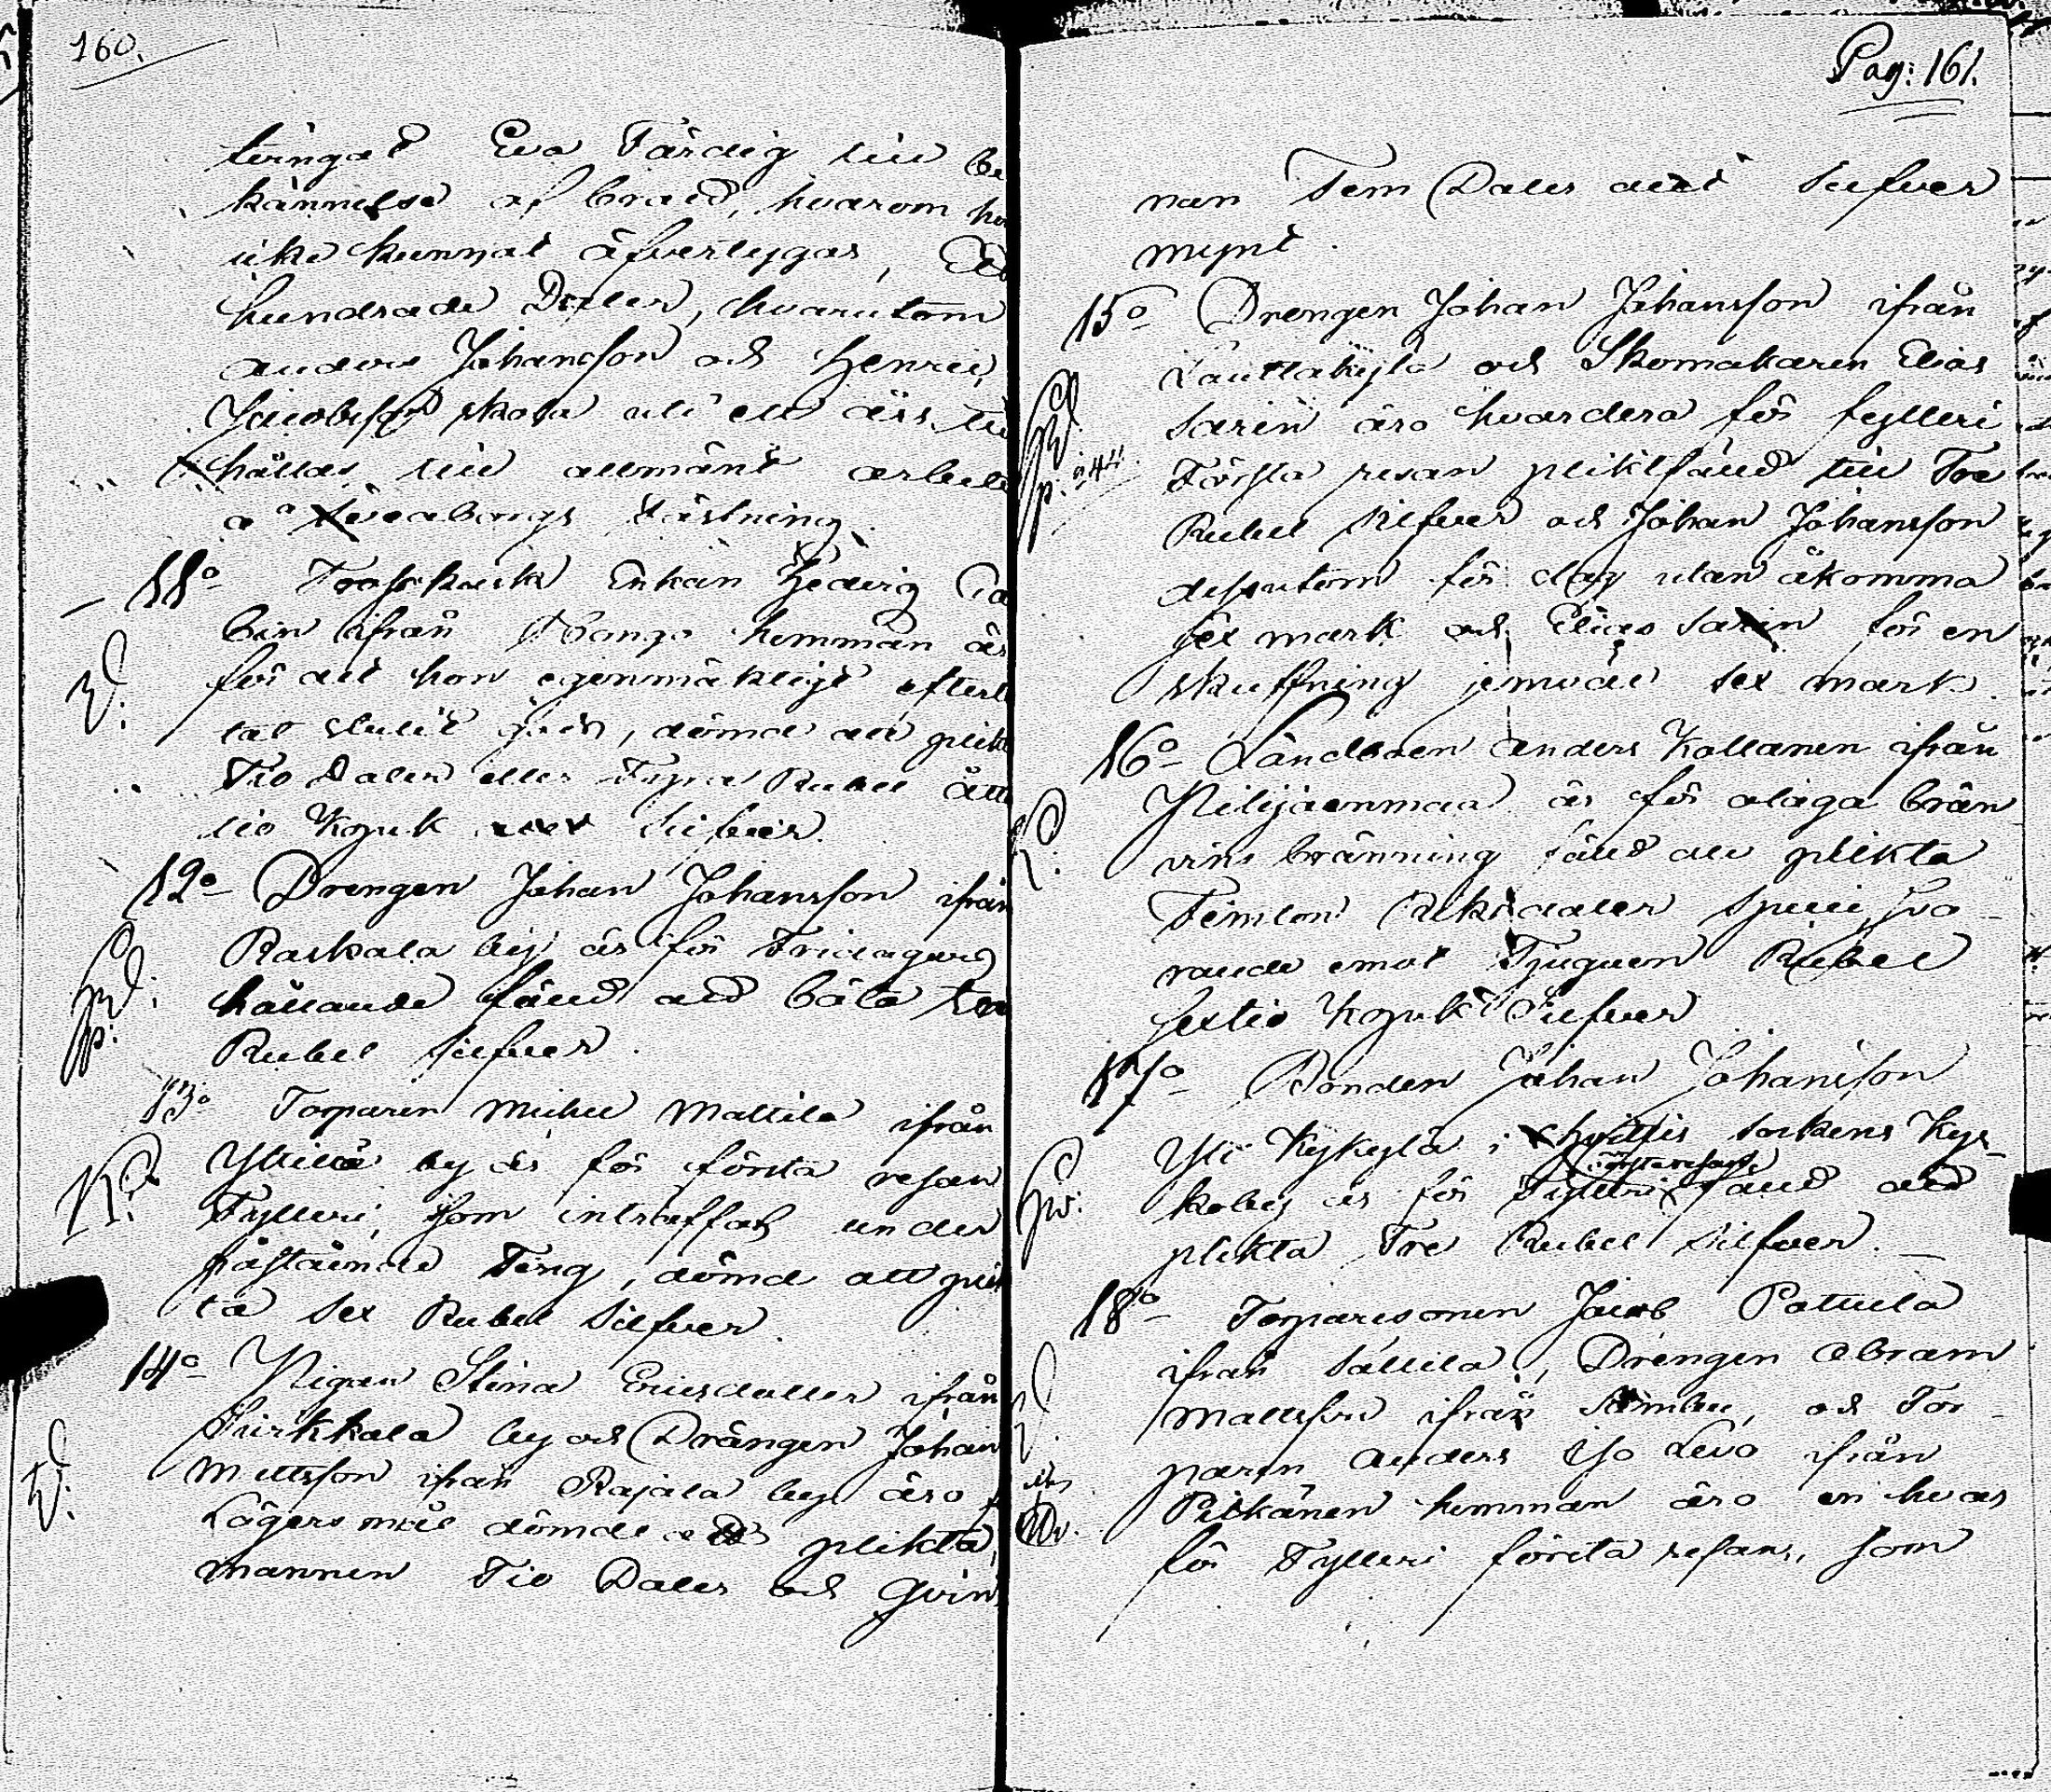 160.
tvingat Eva Färdig till be
kännelse af brott, hvarom hon
icke kunnat öfvertygas, Ett
hundrade Daler, hvarutom
Anders Johansson och Henric
Jacobsson skola uti ett års tid
hållas till allmänt arbete
å Sveaborgs fästning.
11o Enkan Hedvig
bin ifrån hemman är
för att hon egenmäktigt
, dömd att plikt
Tio Daler eller Fyra Rubel åtta
tio Kopek Silfver.
12o Drengen Johan Johansson ifrån
Raskala by är för Fridagars
hållande fäld att böta
Rubel Silfver.
13o Torparen Michel Mattila ifrån
Yttilä by är för första resan
Fylleri, som inträffat under
påstående Ting, dömd att plik
ta Sex Rubel Silfver.
14o Pigan Stina Ericsdotter ifrån
by och Drängen Johan
Mattsson ifrån Rajala by äro f
Lägersmål dömde att plikta,
mannen Tio Daler och Qvin
Pag: 161.
nan Fem Daler allt Silfver
mynt.
15o Drengen Johan Johansson ifrån
Lauttakylä och Skomakaren Elias
Sarin äro hvardera för fylleri
Första resan pliktfäld till Tre
Rubel Silfver och Johan Johansson
dessutom för slag utan åkomma
sex mark och Elias Sarin för en
skuffning jemväl sex mark.
16o Landboen Anders Kallanen ifrån
Pilijaenmaa är för olaga brän
vins bränning fäld att plikta
Femton Riksdaler Specie, sva
rande emot Tjuguen Rubel
sextio Kopek Silfver
17o Bonden Johan Johansson
Yli Kykylä i Hvittis sockens Kys
koby är för Fylleri första resan fäld att
plikta Tre Rubel Silfver.
18o Torparesonen Jacob Pattula
ifrån Sallila, Drengen Abram
Mattsson ifrån och Tor
paren Anders Iso Levo ifrån
Pitkänen hemman äro en hvar
för Fylleri första resan, som